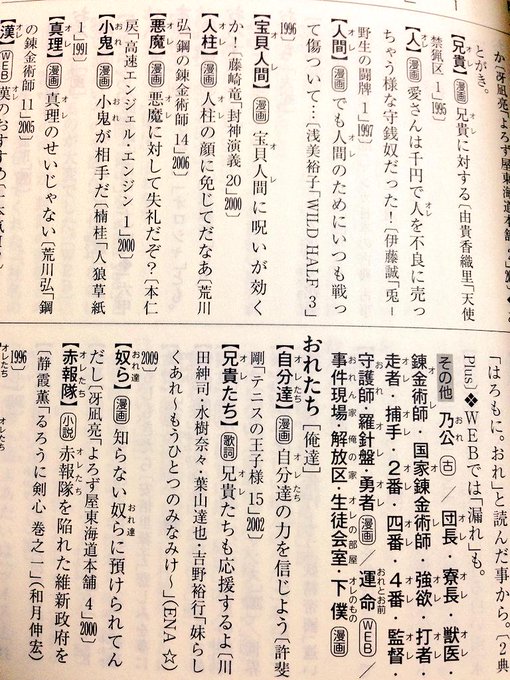 か〔冴凪亮「よろず屋東海道本舗
とがき。
【兄貴】漫画 兄貴に対する〔由貴香織里「天使
禁猟区 1」1995〕
【人】漫画 愛さんは千円で人を不良に売っ
ちゃう様な守銭奴だった!〔伊藤誠「兎―
野生の闘牌 1」1997〕
【人間】漫画 でも人間のためにいつも戦っ
て傷ついて…〔浅美裕子「WILD HALF 3」
1996〕
【宝貝人間】漫画 宝貝人間に呪いが効く
か!〔藤崎竜「封神演義 20」2000〕
【人柱】漫画 人柱の顔に免じてだなあ〔荒川
弘「鋼の錬金術師 14」2006〕
【悪魔】漫画 悪魔に対して失礼だぞ?〔本仁
戻「高速エンジェル・エンジン 1」2000〕
【小鬼】漫画 小鬼が相手だ〔楠桂「人狼草紙
1」1991〕
【真理】漫画 真理のせいじゃない〔荒川弘「鋼
の錬金術師 11」2005〕
【漢】WEB 漢のおすすめ
「はろもに。おれ」と読んだ事から。〔2典
Plus〕❖WEBでは「漏れ」も。
その他 乃公 古 / 団長・寮長・獣医・
錬金術師・国家錬金術師・強欲・打者・
走者・捕手・2番・四番・4番・監督・
守護師・羅針盤・勇者 漫画 / 運命 WEB /
事件現場・解放区・生徒会室・下僕 漫画
おれたち〔俺達〕
【自分達】漫画 自分達の力を信じよう〔許斐
剛「テニスの王子様 15」2002〕
【兄貴たち】歌詞 兄貴たちも応援するよ〔川
田紳司・水樹奈々・葉山達也・吉野裕行「妹らし
くあれ~もうひとつのみなみけ~」(ENA☆)
2009〕
【奴ら】漫画 知らない奴らに預けられてん
だし〔冴凪亮「よろず屋東海道本舗 4」2000〕
【赤報隊】小説 赤報隊を陥れた維新政府を
〔静霞薫「るろうに剣心 巻之一」(和月伸宏)
1996〕